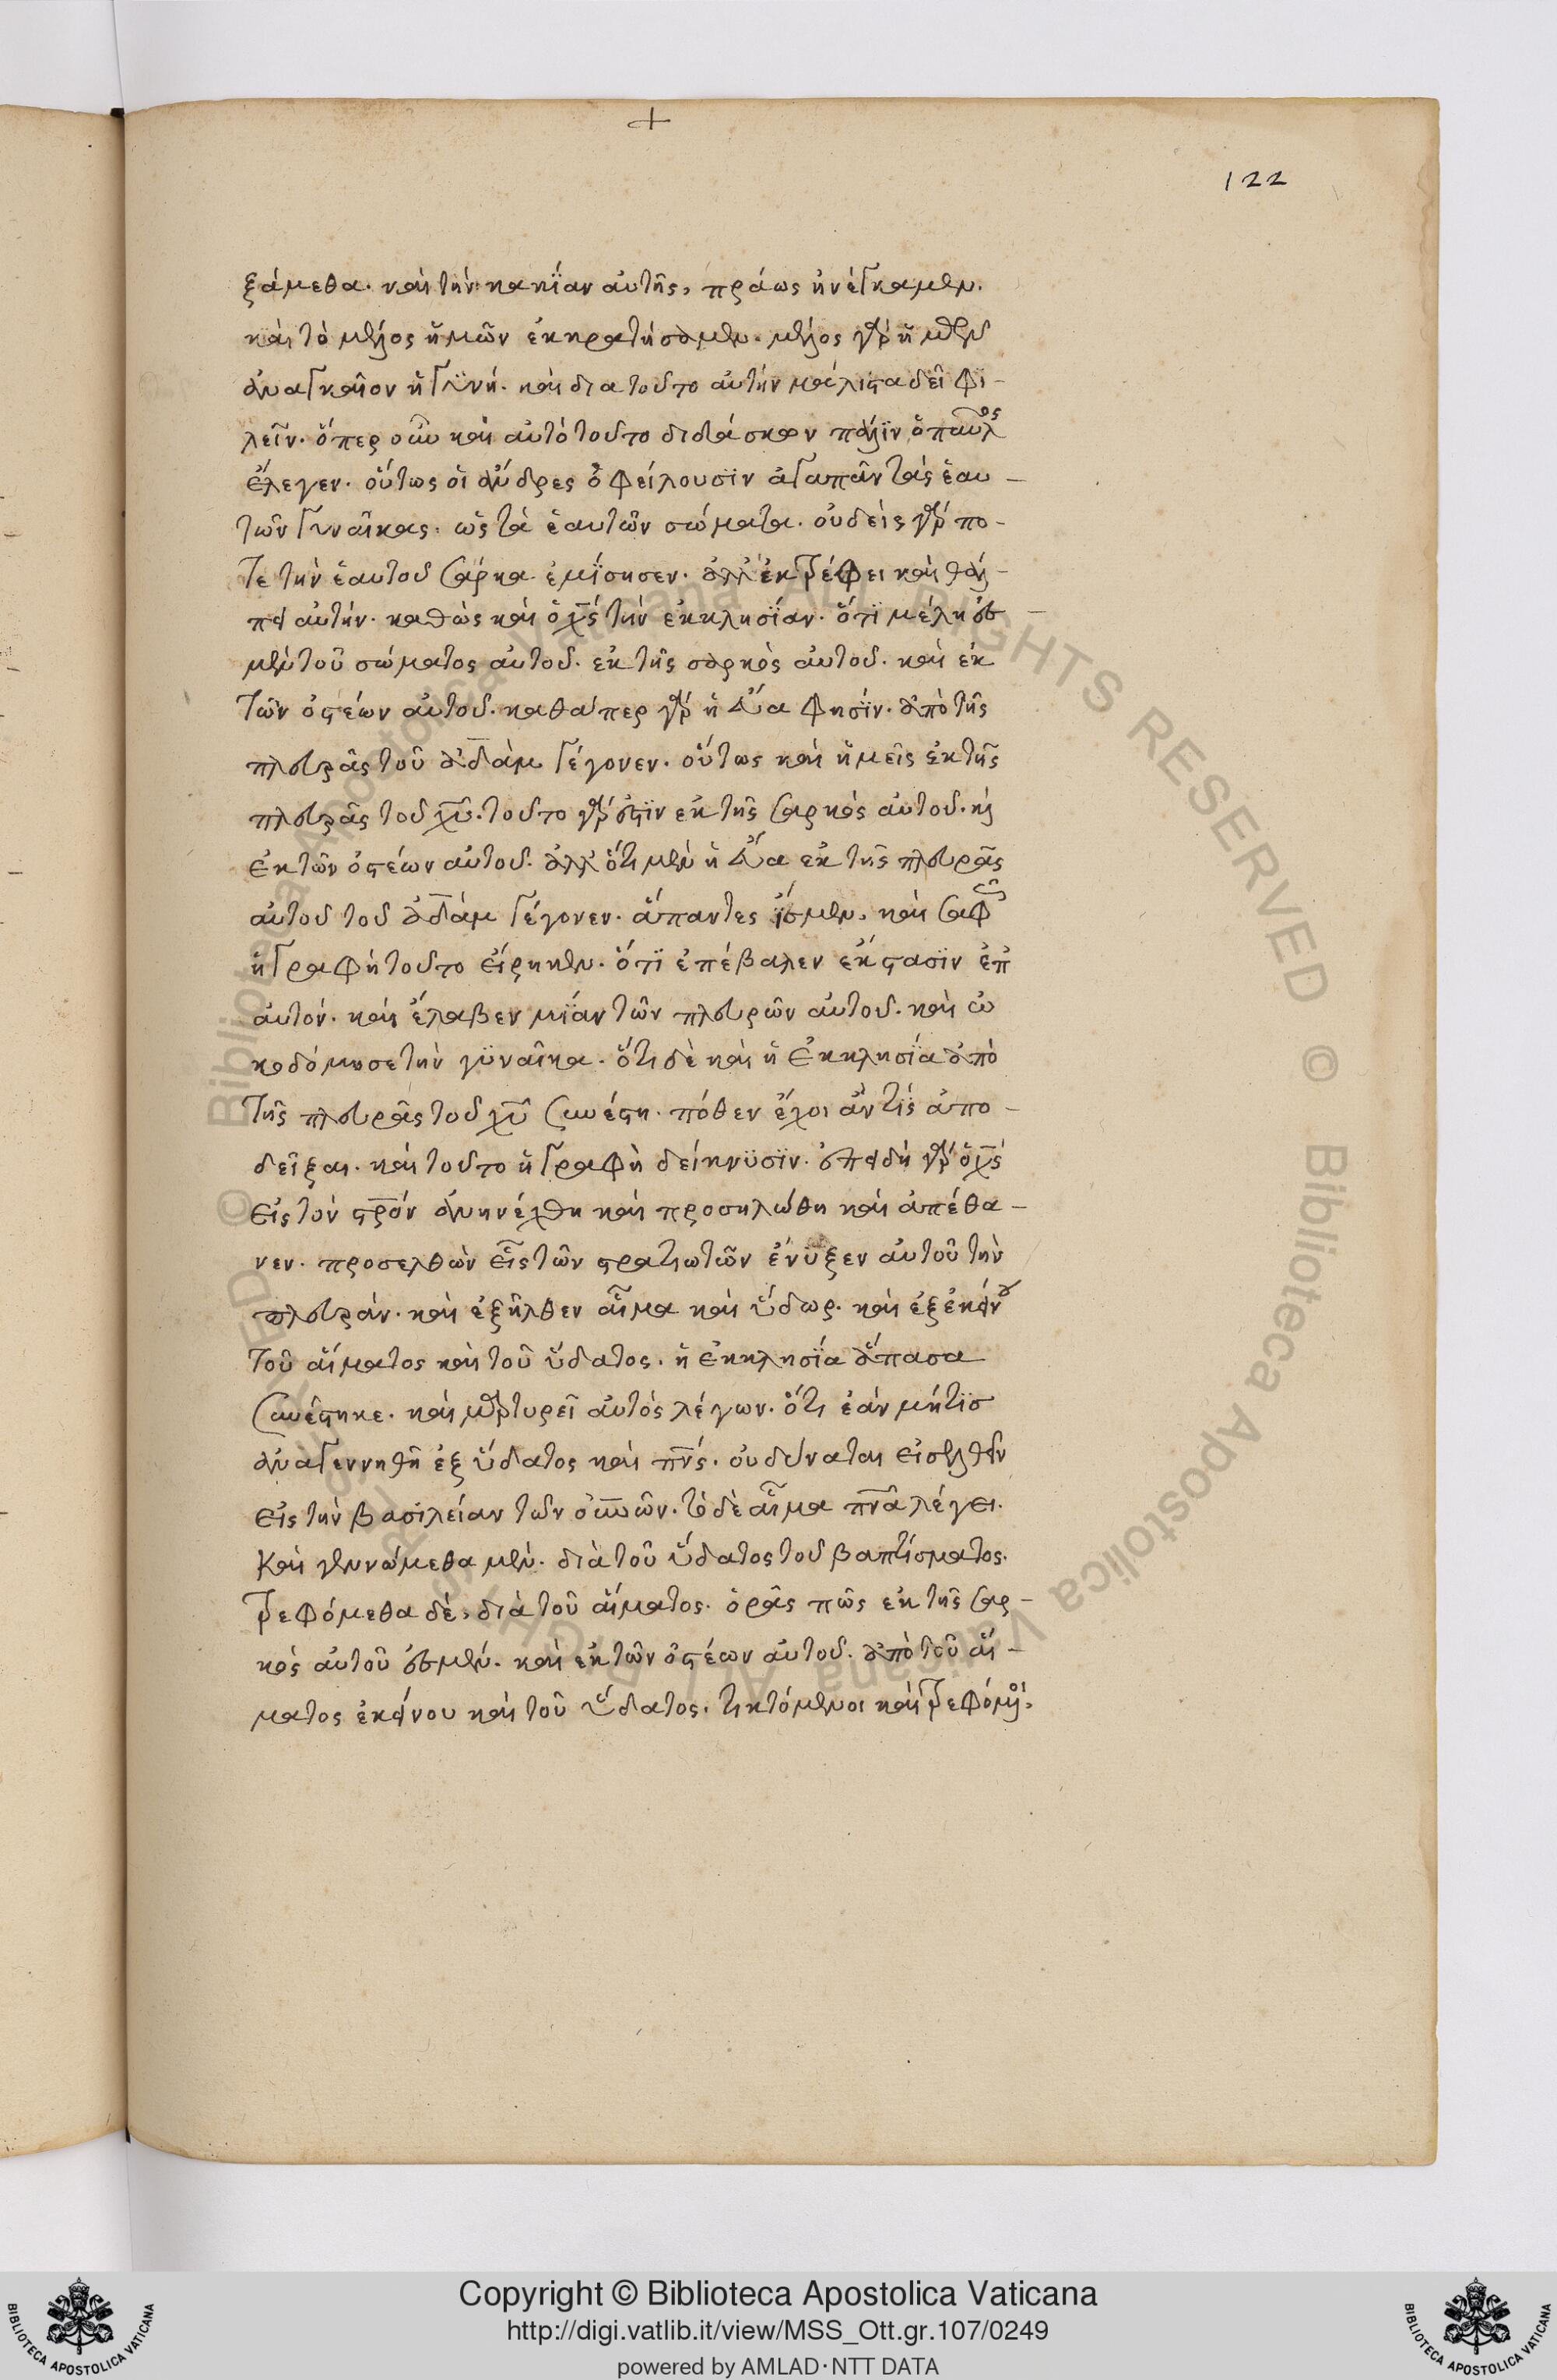 +
122
ξάμεθα. καὶ τὴν κακΐαν αὐτῆς, πράως ἠνέγκαμεν.
καὶ τὸ μέλος ἡμῶν ἐκκρατήσομεν. μέλος γὰρ ἡμῶν
ἀναγκαῖον ἡ γϋνή. καὶ δια τοῦτο αὐτὴν μάλιστα δεῖ φϊ-
λεῖν. ὅπερ οὖν καὶ αὐτὸ τοῦτο διδάσκων πάλϊν ὁ παῦλος
ἔλεγεν. οὕτως οἱ ἄνδρες ὀφείλουσϊν ἀγαπᾶν τὰς ἑαυ-
τῶν γυναῖκας. ὡς τὰ ἑαυτῶν σώματα. οὐδεὶς γάρ πο-
τε τὴν ἑαυτοῦ σάρκα ἐμΐσησεν. ἀλλ' ἐκτρέφει καὶ θάλ-
πει αὐτήν. καθὼς καὶ ὁ χς τὴν ἐκκλησΐαν. ὅτϊ μέλη ἐσ-
μὲν τοῦ σώματος αὐτοῦ. ἐκ τῆς σαρκὸς αὐτοῦ. καὶ ἐκ
τῶν ὀστέων αὐτοῦ. καθάπερ γὰρ ἡ εὔα φησΐν. ἀπὸ τῆς
πλευρᾶς τοῦ ἀδὰμ γέγονεν. οὕτως καὶ ἡμεῖς ἐκ τῆς
πλευρᾶς τοῦ χυ. τοῦτο γάρ ἐστϊν ἐκ τῆς σαρκὸς αὐτοῦ. κὶ
ἐκ τῶν ὀστέων αὐτοῦ. ἀλλ' ὅτι μὲν ἡ εὔα ἐκ τῆς πλευρᾶς
αὐτοῦ τοῦ ἀδάμ γέγονεν. ἅπαντες ἴσμεν. καὶ σαφῶς
ἡ γραφὴ τοῦτο εἴρηκεν. ὅτϊ ἐπέβαλεν ἔκστασϊν ἐπ
αὐτόν. καὶ ἔλαβεν μΐαν τῶν πλευρῶν αὐτοῦ. καὶ ὠ
κοδόμησε τὴν γϋναῖκα. ὅτι δὲ καὶ ἡ ἐκκλησΐα ἀπὸ
τῆς πλευρᾶς τοῦ χυ συνέστη. πόθεν ἔχοι ἄν τϊς ἀπο-
δεῖξαι. καὶ τοῦτο ἡ γραφὴ δείκνϋσϊν. ἐπειδὴ γὰρ ὁ χς
εἰς τὸν στρον ἀνηνέχθη καὶ προσηλώθη καὶ ἀπέθα-
νεν. προσελθὼν εἷς τῶν στρατιωτῶν ἔνυξεν αὐτοῦ τὴν
πλευράν. καὶ ἐξῆλθεν αἷμα καὶ ὕδωρ. καὶ ἐξ ἐκείνου
τοῦ αἵματος καὶ τοῦ ὕδατος. ἡ ἐκκλησΐα ἅπασα
συνέστηκε. καὶ μαρτυρεῖ αὐτὸς λέγων. ὅτι ἐὰν μήτϊσ
ἀναγεννηθῆ ἐξ ὕδατος καὶ πνς. οὐ δύναται εἰσελθεῖν
εἰς τὴν βασιλείαν τῶν οὐνῶν. τὸ δὲ αἷμα πνα λέγει.
Καὶ γεννώμεθα μὲν. διὰ τοῦ ὕδατος τοῦ βαπτίσματος.
τρεφόμεθα δὲ, διὰ τοῦ αἵματος. ὁρᾶς πῶς ἐκ τῆς σαρ-
κὸς αὐτοῦ ἐσμὲν. καὶ ἐκ τῶν ὀστέων αὐτοῦ. ἀπὸ τοῦ αἵ-
ματος ἐκείνου καὶ τοῦ ὕδατος. τικτόμενοι καὶ τρεφόμενοι.
Copyright © Biblioteca Apostolica Vaticana
http://digi.vatlib.it/view/MSS_Ott.gr.107/0249
powered by AMLAD·NTT DATA